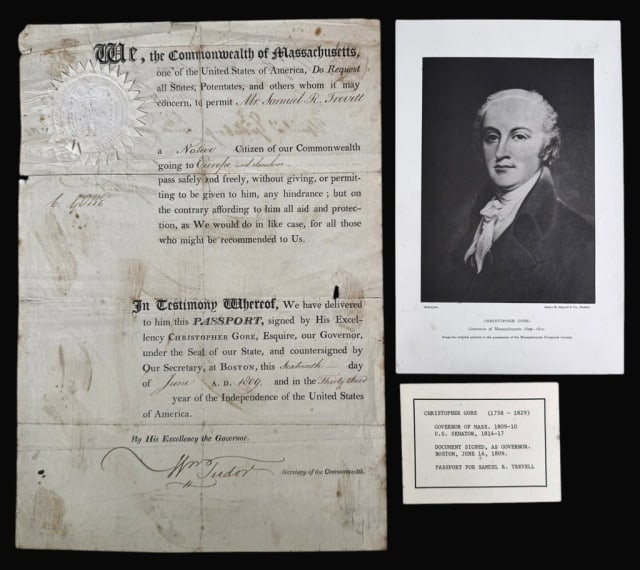 We, the Commonwealth of Massachusetts,
one of the United States of America, Do Request
all States, Potentates, and others whom it may
concern, to permit Mr Samuel R. Trevitt
a Native Citizen of our Commonwealth
going to Europe and elsewhere
pass safely and freely, without giving, or permit-
ting to be given to him, any hindrance; but on
the contrary affording to him all aid and protec-
tion, as We would do in like case, for all those
who might be recommended to Us.
C. Gore
In Testimony Whereof, We have delivered
to him this PASSPORT, signed by His Excel-
lency CHRISTOPHER GORE, Esquire, our Governor,
under the Seal of our State, and countersigned by
Our Secretary, at BOSTON, this Sixteenth day
of June A. D. 1809, and in the Thirty third
year of the Independence of the United States
of America.
By His Excellency the Governor.
Wm Tudor Secretary of the Commonwealth.
CHRISTOPHER GORE.
Governor of Massachusetts 1809-1810
From the original portrait in the possession of the Massachusetts Historical Society.
CHRISTOPHER GORE (1758 - 1829)
GOVERNOR OF MASS. 1809-10
U.S. SENATOR, 1814-17
DOCUMENT SIGNED, AS GOVERNOR.
BOSTON, JUNE 16, 1809.
PASSPORT FOR SAMUEL R. TREVELL